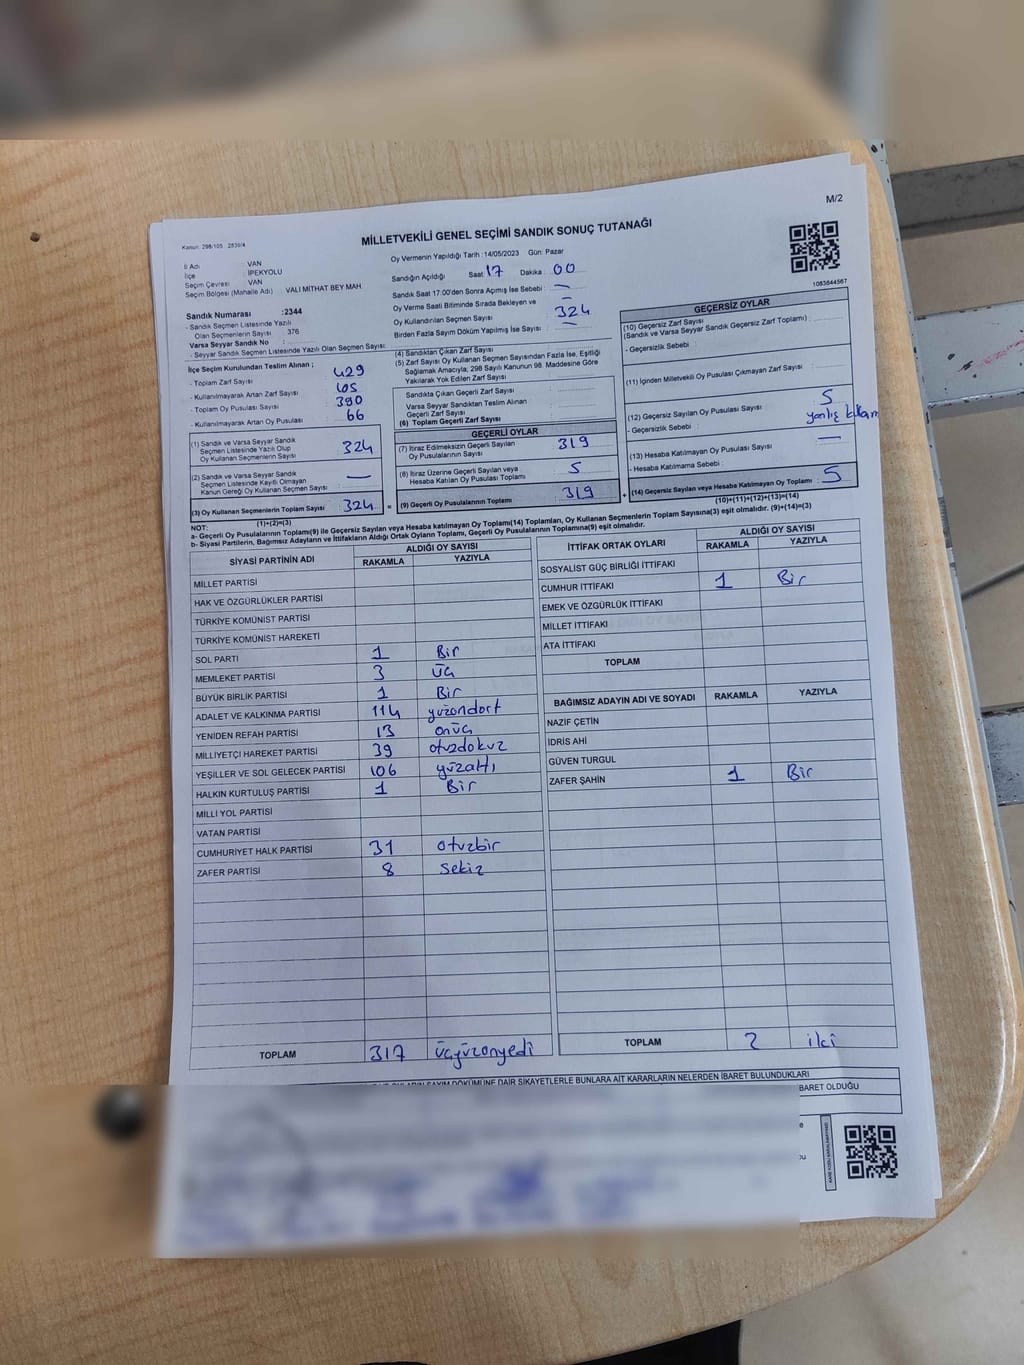 M/2
Kanun: 298/105 2839/4
MİLLETVEKİLİ GENEL SEÇİMİ SANDIK SONUÇ TUTANAĞI
1083844567
İl Adı : VAN
İlçe : İPEKYOLU
Seçim Çevresi : VAN
Seçim Bölgesi (Mahalle Adı) : VALİ MİTHAT BEY MAH.
Sandık Numarası :2344
- Sandık Seçmen Listesinde Yazılı
Olan Seçmenlerin Sayısı : 376
Varsa Seyyar Sandık No :
- Seyyar Sandık Seçmen Listesinde Yazılı Olan Seçmen Sayısı:
Oy Vermenin Yapıldığı Tarih : 14/05/2023 Gün: Pazar
Sandığın Açıldığı Saat 17 Dakika 00
Sandık Saat 17:00'den Sonra Açılmış İse Sebebi : —
Oy Verme Saati Bitiminde Sırada Bekleyen ve
Oy Kullandırılan Seçmen Sayısı : —
324
Birden Fazla Sayım Döküm Yapılmış İse Sayısı : —
İlçe Seçim Kurulundan Teslim Alınan ;
- Toplam Zarf Sayısı : 429
- Kullanılmayarak Artan Zarf Sayısı : 105
- Toplam Oy Pusulası Sayısı : 390
- Kullanılmayarak Artan Oy Pusulası : 66
(1) Sandık ve Varsa Seyyar Sandık
Seçmen Listesinde Yazılı Olup
Oy Kullanan Seçmenlerin Sayısı : 324
(2) Sandık ve Varsa Seyyar Sandık
Seçmen Listesinde Kayıtlı Olmayan
Kanun Gereği Oy Kullanan Seçmen Sayısı : —
(3) Oy Kullanan Seçmenlerin Toplam Sayısı : 324
(1)+(2)=(3)
(4) Sandıktan Çıkan Zarf Sayısı
(5) Zarf Sayısı Oy Kullanan Seçmen Sayısından Fazla İse, Eşitliği
Sağlamak Amacıyla, 298 Sayılı Kanunun 98. Maddesine Göre
Yakılarak Yok Edilen Zarf Sayısı
Sandıkta Çıkan Geçerli Zarf Sayısı
Varsa Seyyar Sandıktan Teslim Alınan
Geçerli Zarf Sayısı
(6) Toplam Geçerli Zarf Sayısı
GEÇERLİ OYLAR
(7) İtiraz Edilmeksizin Geçerli Sayılan
Oy Pusulalarının Sayısı : 319
(8) İtiraz Üzerine Geçerli Sayılan veya
Hesaba Katılan Oy Pusulası Toplamı : 5
(9) Geçerli Oy Pusulalarının Toplamı : 319
GEÇERSİZ OYLAR
(10) Geçersiz Zarf Sayısı
(Sandık ve Varsa Seyyar Sandık Geçersiz Zarf Toplamı) :
- Geçersizlik Sebebi :
(11) İçinden Milletvekili Oy Pusulası Çıkmayan Zarf Sayısı :
(12) Geçersiz Sayılan Oy Pusulası Sayısı : 5
- Geçersizlik Sebebi : yanlış
(13) Hesaba Katılmayan Oy Pusulası Sayısı : —
- Hesaba Katılmama Sebebi :
(14) Geçersiz Sayılan veya Hesaba Katılmayan Oy Toplamı : 5
(10)+(11)+(12)+(13)=(14)
NOT:
a- Geçerli Oy Pusulalarının Toplamı(9) ile Geçersiz Sayılan veya Hesaba katılmayan Oy Toplam(14) Toplamları, Oy Kullanan Seçmenlerin Toplam Sayısına(3) eşit olmalıdır. (9)+(14)=(3)
b- Siyasi Partilerin, Bağımsız Adayların ve İttifakların Aldığı Ortak Oyların Toplamı, Geçerli Oy Pusulalarının Toplamına(9) eşit olmalıdır.
SİYASİ PARTİNİN ADI ALDIĞI OY SAYISI
RAKAMLA YAZIYLA
MİLLET PARTİSİ
HAK VE ÖZGÜRLÜKLER PARTİSİ
TÜRKİYE KOMÜNİST PARTİSİ
TÜRKİYE KOMÜNİST HAREKETİ
SOL PARTİ 1 Bir
MEMLEKET PARTİSİ 3 üç
BÜYÜK BİRLİK PARTİSİ 1 Bir
ADALET VE KALKINMA PARTİSİ 114 yüzondört
YENİDEN REFAH PARTİSİ 13 onüç
MİLLİYETÇİ HAREKET PARTİSİ 39 otuzdokuz
YEŞİLLER VE SOL GELECEK PARTİSİ 106 yüzaltı
HALKIN KURTULUŞ PARTİSİ 1 Bir
MİLLİ YOL PARTİSİ
VATAN PARTİSİ
CUMHURİYET HALK PARTİSİ 31 otuzbir
ZAFER PARTİSİ 8 Sekiz
TOPLAM 317 üçyüzonyedi
İTTİFAK ORTAK OYLARI ALDIĞI OY SAYISI
RAKAMLA YAZIYLA
SOSYALİST GÜÇ BİRLİĞİ İTTİFAKI
CUMHUR İTTİFAKI 1 Bir
EMEK VE ÖZGÜRLÜK İTTİFAKI
MİLLET İTTİFAKI
ATA İTTİFAKI
TOPLAM
BAĞIMSIZ ADAYIN ADI VE SOYADI RAKAMLA YAZIYLA
NAZİF ÇETİN
İDRİS AHİ
GÜVEN TURGUL
ZAFER ŞAHİN 1 Bir
TOPLAM 2 iki
SAYIM DÖKÜMÜNE DAİR ŞİKAYETLERLE BUNLARA AİT KARARLARIN NELERDEN İBARET BULUNDUKLARI
BARET OLDUĞU